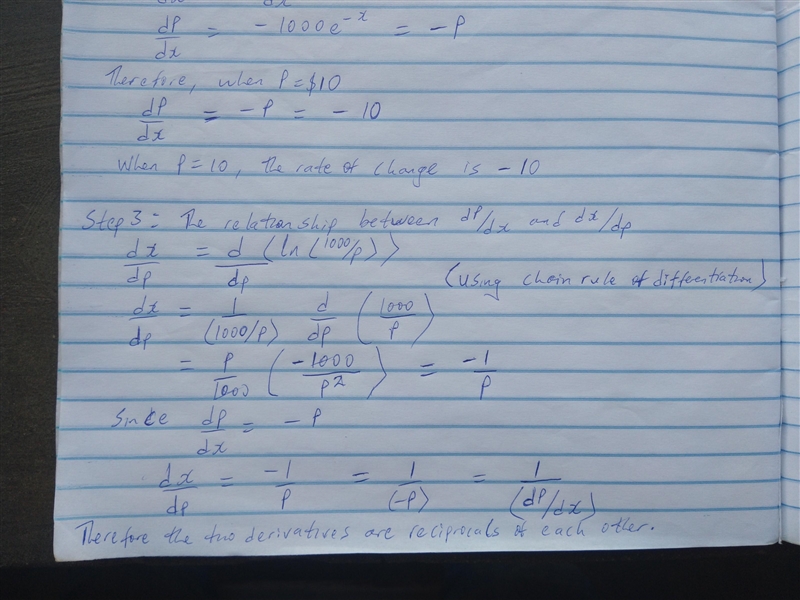 dx
dP/dx = -1000e^-x = -P
Therefore, when P=$10
dP/dx = -P = -10
When P=10, the rate of change is -10
Step 3: The relationship between dP/dx and dx/dp
dx/dp = d/dp (ln(1000/p))
(Using chain rule of differentiation)
dx/dp = 1/(1000/p) d/dp (1000/P)
= P/1000 (-1000/P^2) = -1/P
Since dP/dx = -P
dx/dp = -1/P = 1/(-P) = 1/(dP/dx)
Therefore the two derivatives are reciprocals of each other.